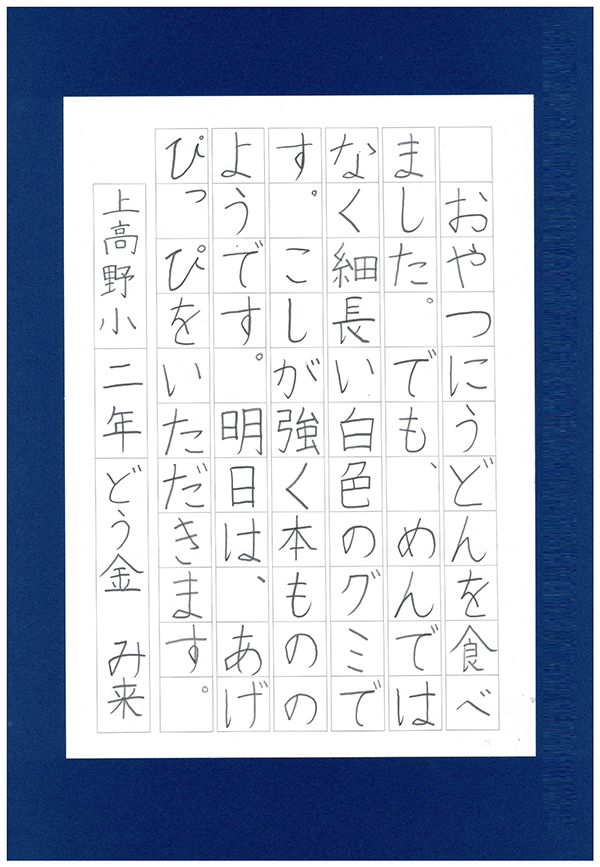 おやつにうどんを食べ
ました。でも、めんでは
なく細長い白色のグミで
す。こしが強く本ものの
ようです。明日は、あげ
ぴっぴをいただきます。
上高野小 二年 どう金 み来